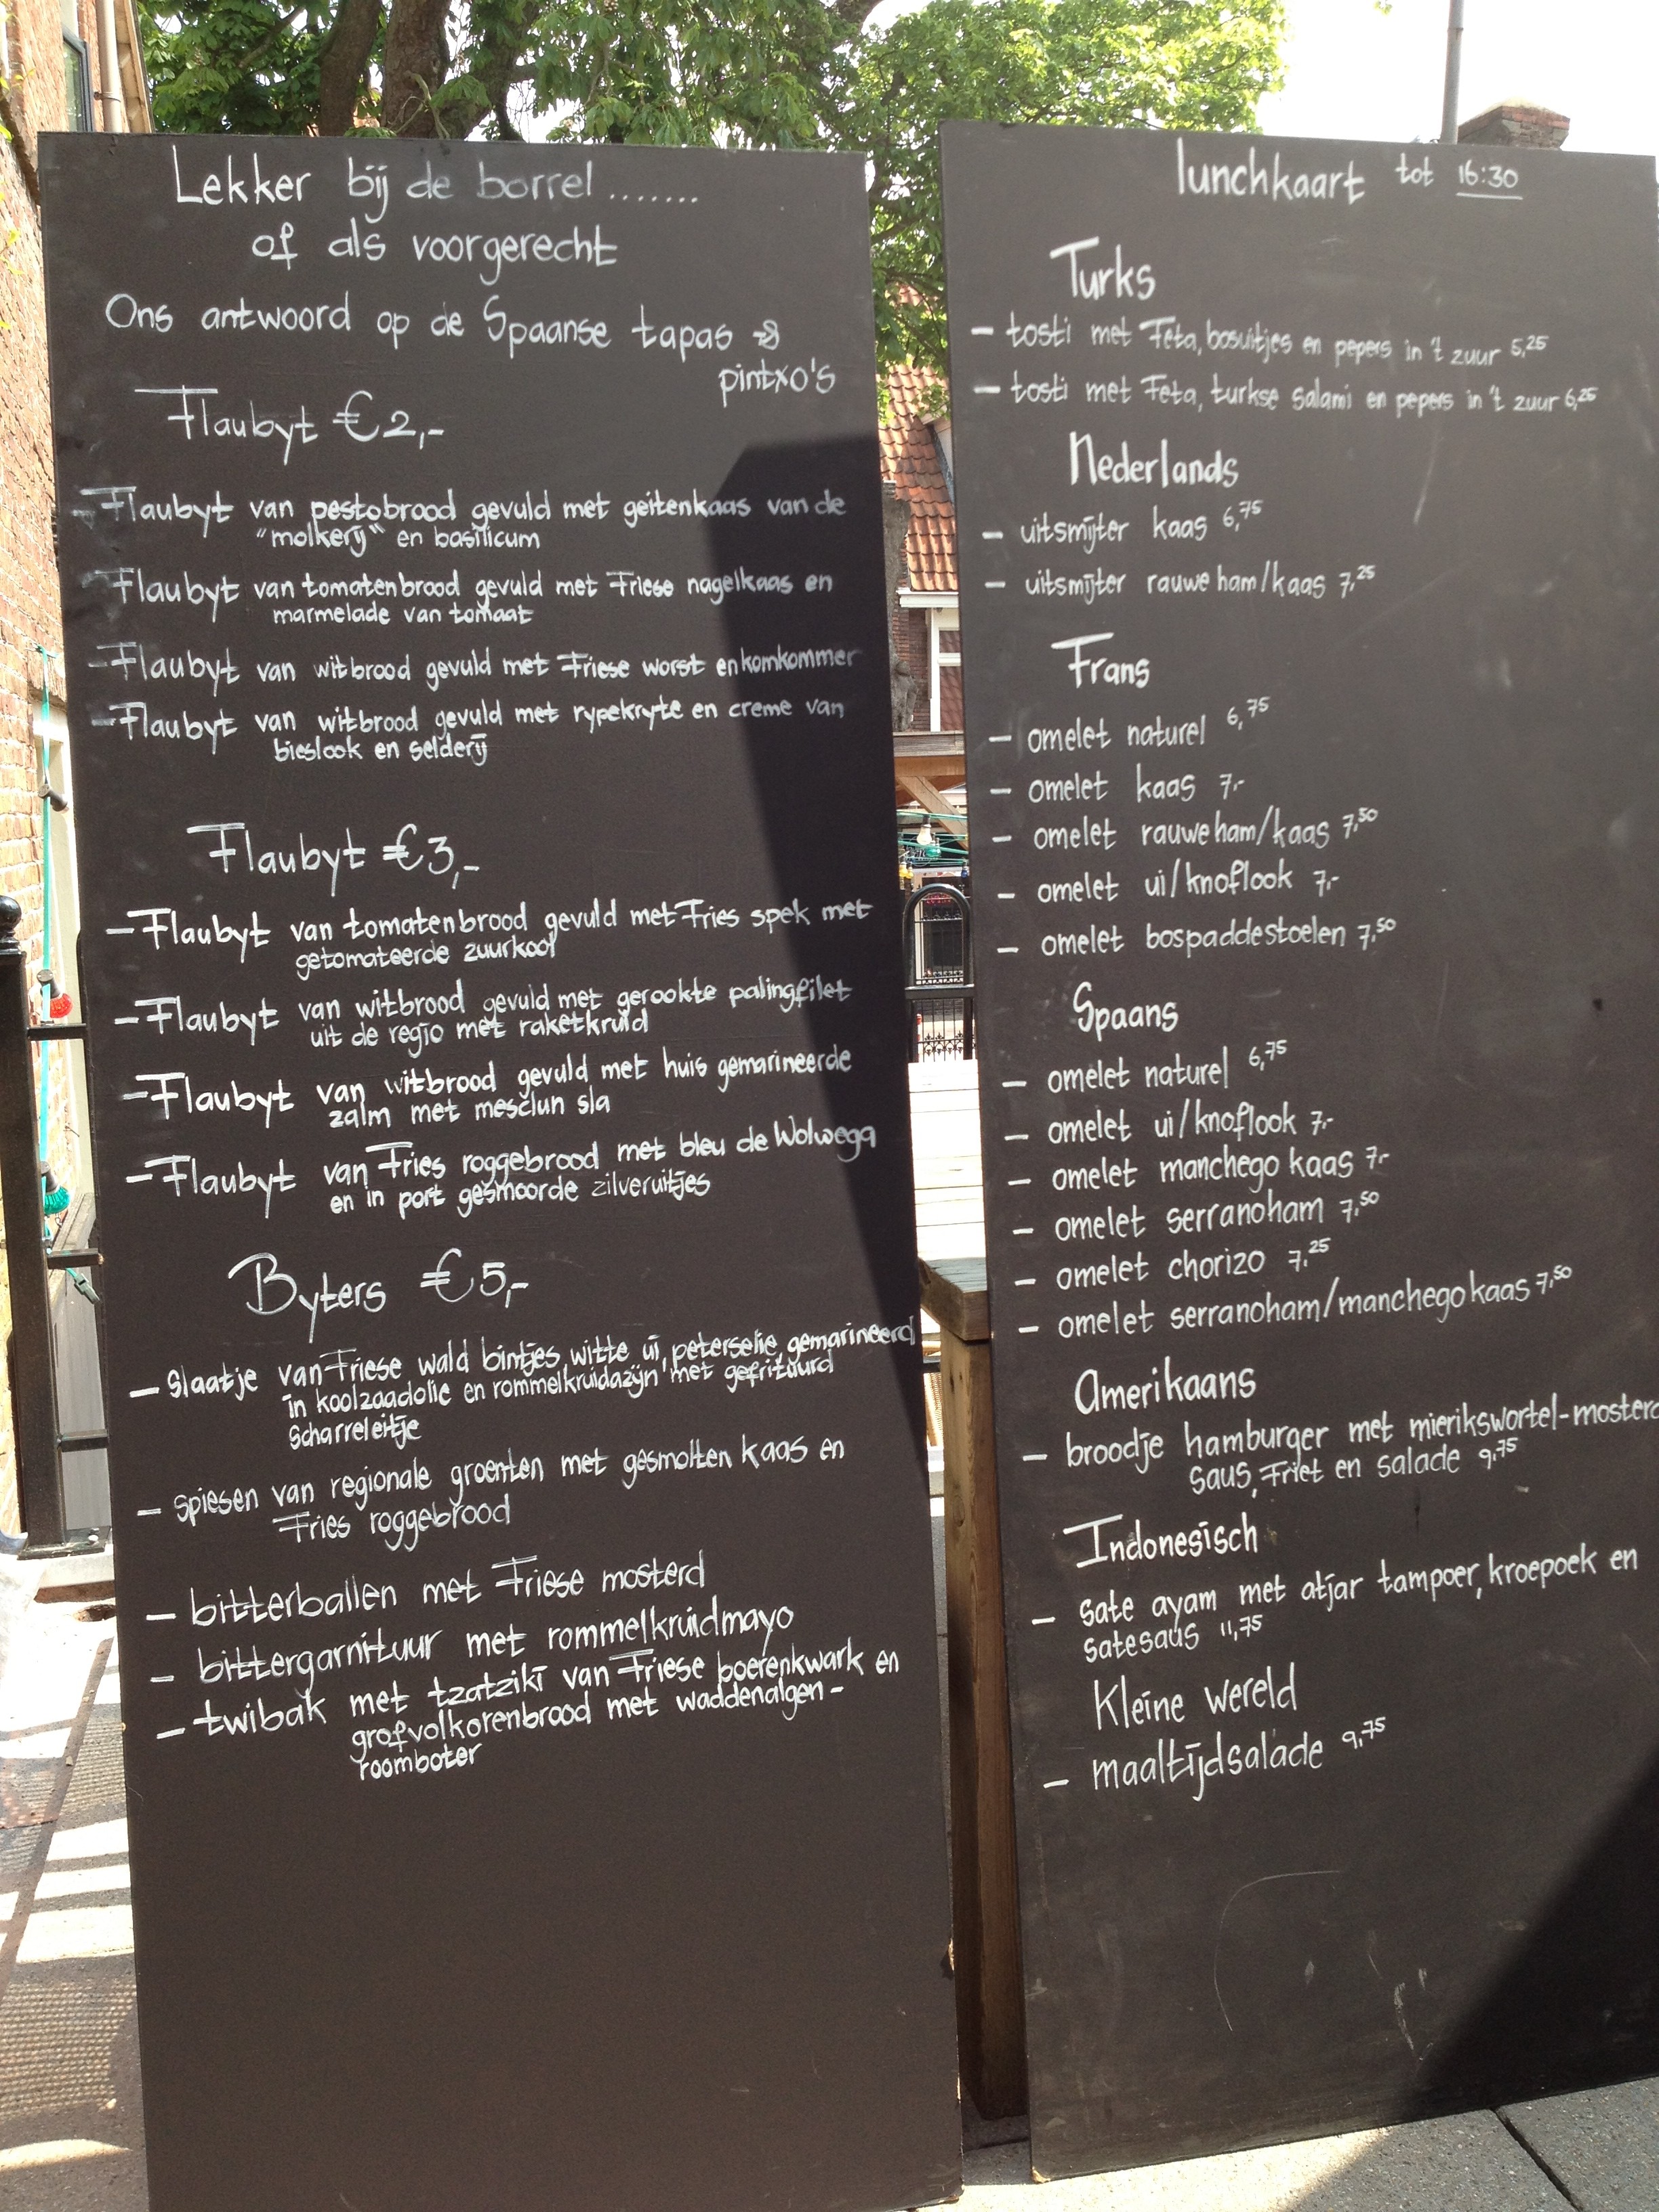 Lekker bij de borrel.......
of als voorgerecht
Ons antwoord op de Spaanse tapas →
pintxo's
Flaubyt €2,-
- Flaubyt van pestobrood gevuld met geitenkaas van de
"molkerij" en basilicum
- Flaubyt van tomatenbrood gevuld met Friese nagelkaas en
marmelade van tomaat
- Flaubyt van witbrood gevuld met Friese worst en komkommer
- Flaubyt van witbrood gevuld met rypekryte en creme van
bieslook en selderij
Flaubyt €3,-
- Flaubyt van tomatenbrood gevuld met Fries spek met
getomateerde zuurkool
- Flaubyt van witbrood gevuld met gerookte palingfilet
uit de regio met raketkruid
- Flaubyt van witbrood gevuld met huis gemarineerde
zalm met mesclun sla
- Flaubyt van Fries roggebrood met bleu de Wolwega
en in port gesmoorde zilveruitjes
Byters €5,-
- slaatje van Friese wald bintjes, witte ui, peterselie, gemarineerd
in koolzaadolie en rommelkruidazijn met gefrituurd
scharreleitje
- spiesen van regionale groenten met gesmolten kaas en
Fries roggebrood
- bitterballen met Friese mosterd
- bittergarnituur met rommelkruidmayo
- twibak met tzatziki van Friese boerenkwark en
grofvolkorenbrood met waddenalgen-
roomboter
lunchkaart tot 16:30
Turks
- tosti met Feta, bosuitjes en pepers in 't zuur 5,25
- tosti met Feta, turkse salami en pepers in 't zuur 6,25
Nederlands
- uitsmijter kaas 6,75
- uitsmijter rauwe ham/kaas 7,25
Frans
- omelet naturel 6,75
- omelet kaas 7,-
- omelet rauwe ham/kaas 7,50
- omelet ui/knoflook 7,-
- omelet bospaddestoelen 7,50
Spaans
- omelet naturel 6,75
- omelet ui/knoflook 7,-
- omelet manchego kaas 7,-
- omelet serranoham 7,50
- omelet chorizo 7,25
- omelet serranoham/manchego kaas 7,50
Amerikaans
- broodje hamburger met mierikswortel-mosterd
saus, Friet en salade 9,75
Indonesisch
- sate ayam met atjar tampoer, kroepoek en
satesaus 11,75
Kleine wereld
- maaltijdsalade 9,75